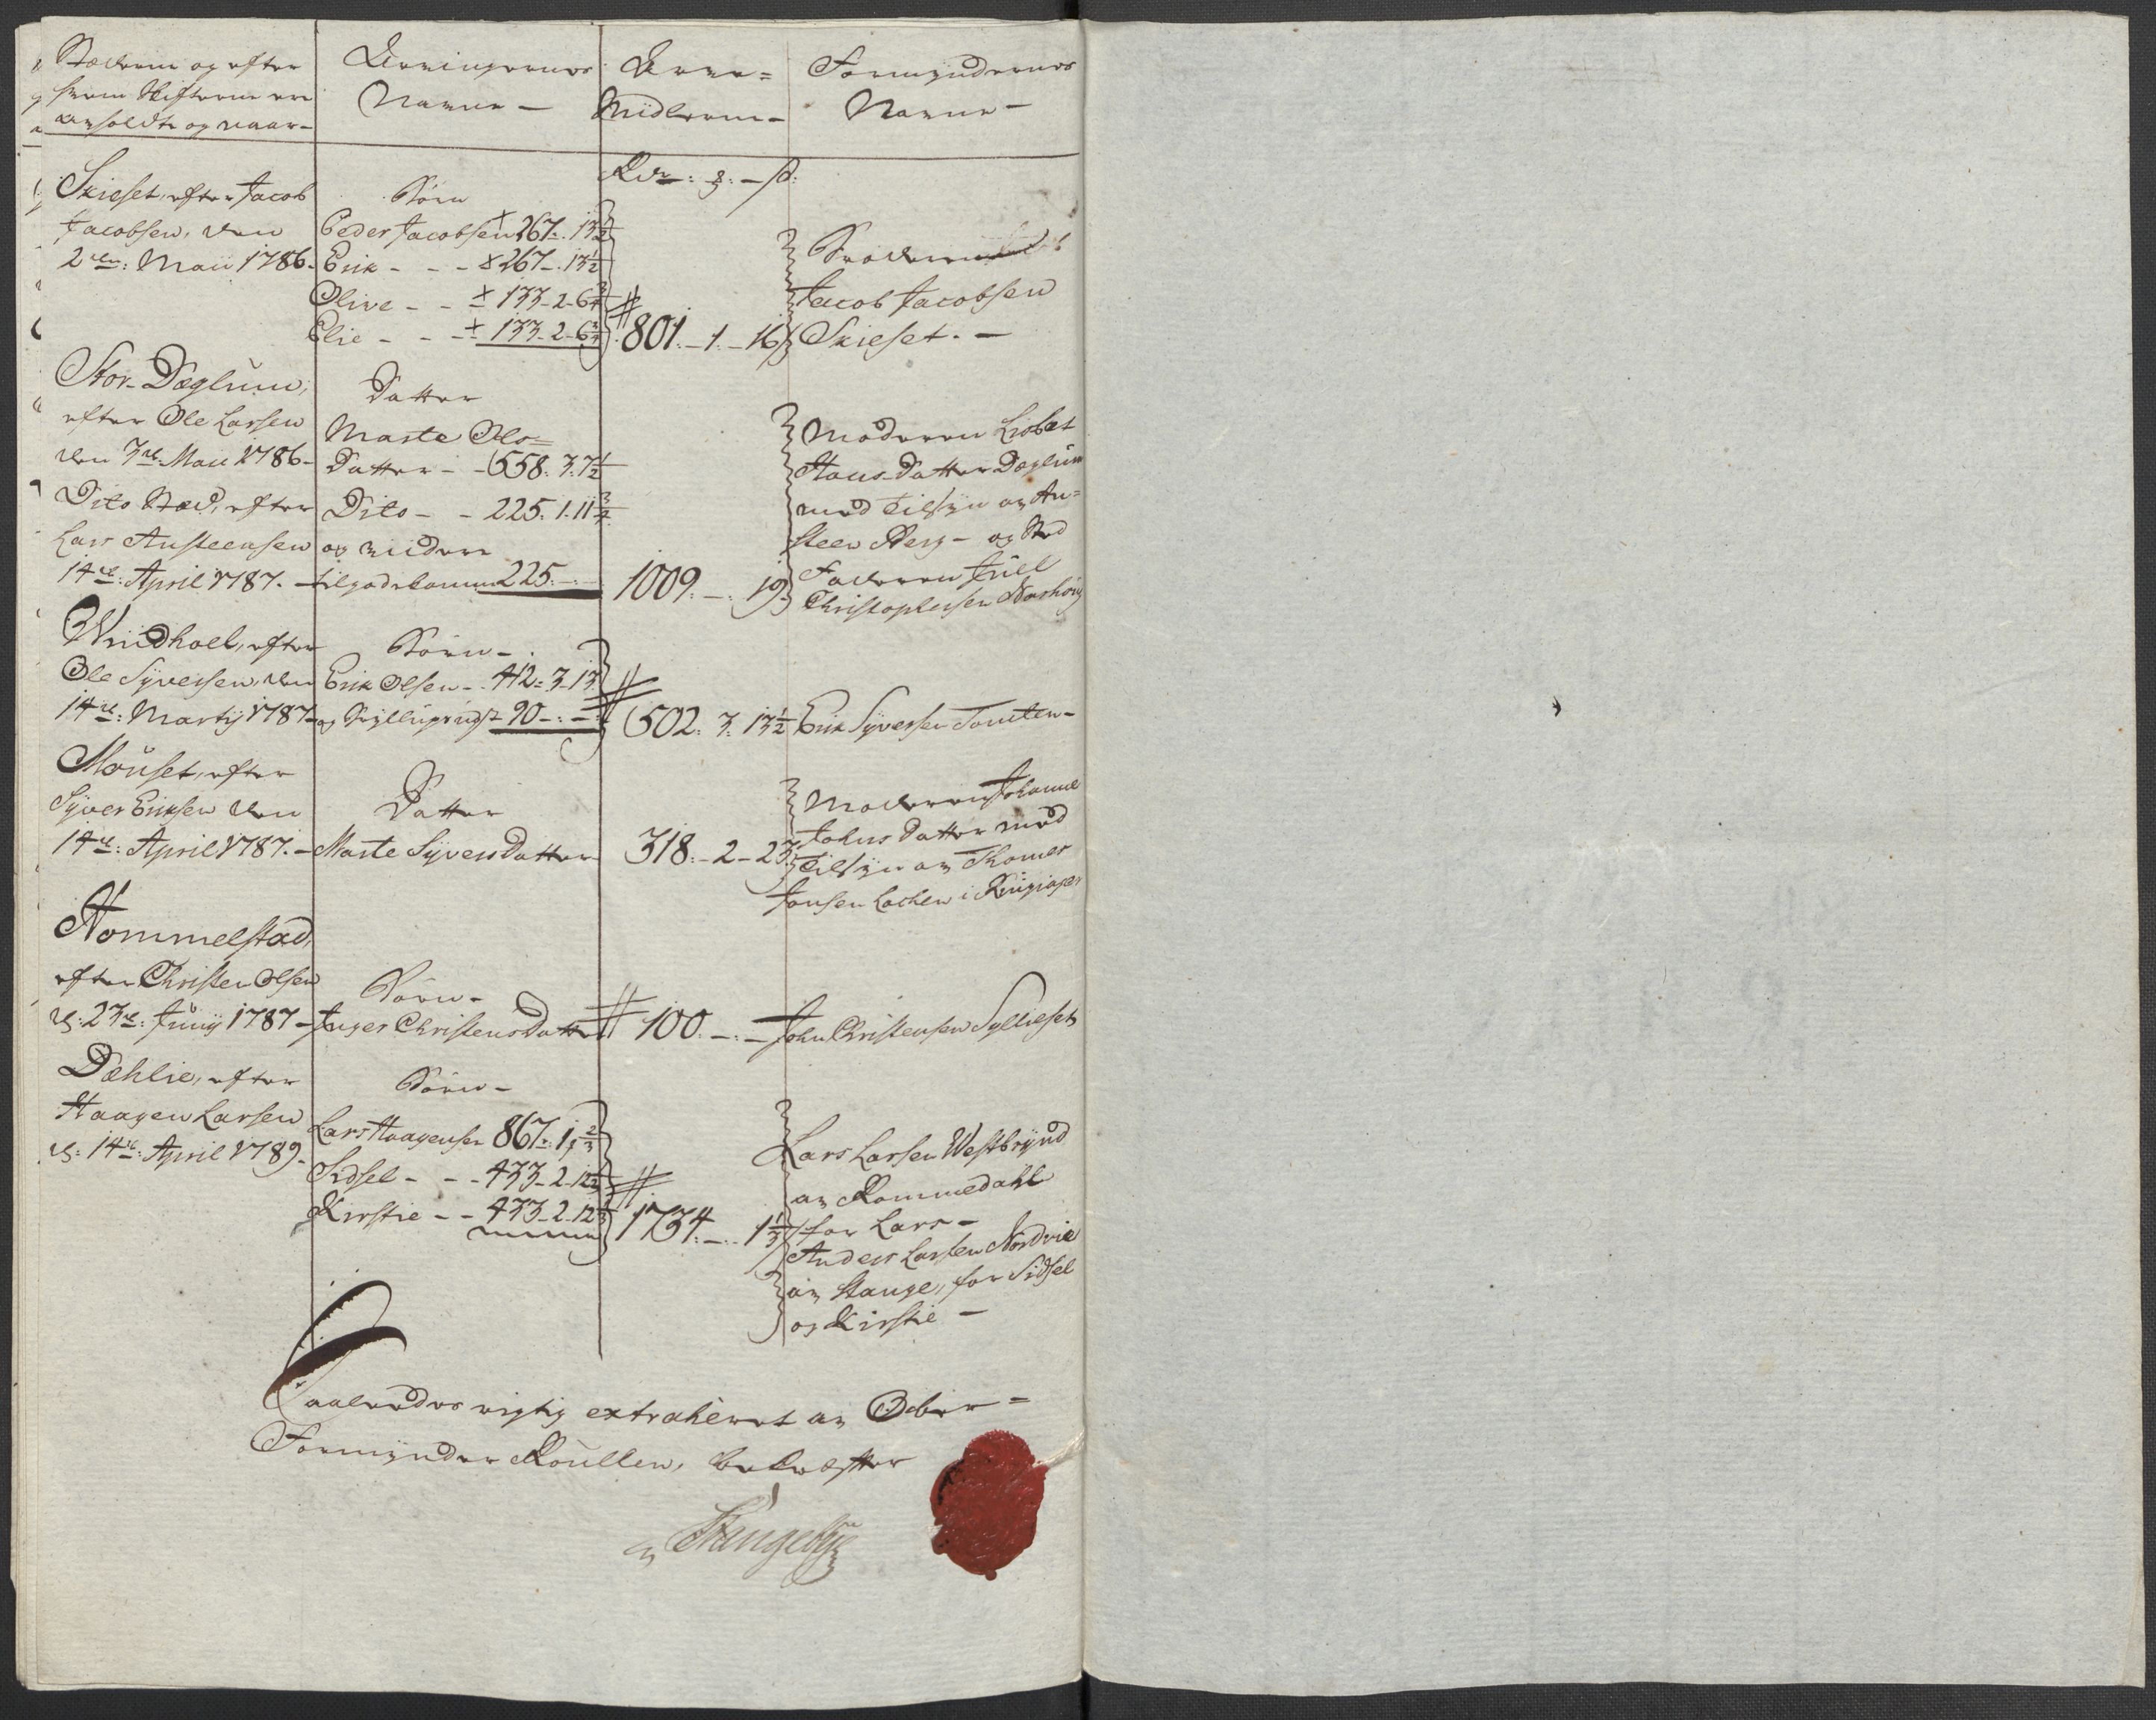 Stæderne og efter
hvem Skifterne ere
anholdte og naar-
Arvingernes
Navne -
Arve=
Midlerne-
Formyndernes
Navne -
Rdr: ß:
Skieset, efter Jacob
Jacobsen, den
2den: Maii 1786.
Børn
Peder Jacobsen 267. 13½
Erik - - - 267 - 13½
Olive - - 133-2-6¾
Elie - - - 133-2-6¾
801. - 1. - 16
Broderen
Jacob Jacobsen
Skieset. -
Stor-Dæglum,
efter Ole Larsen
den 3de Maii 1786-
Dito Stæd, efter
Lars Austeensen
14de: April 1787. -
Datter
Marte Ols=
Datter - - 558. 3. 7½
Dito - - 225. 1. 11¾
og videre
tilgodekomme 225. -. -
1009. -. 19
Moderen Lisbet
Hans Datter Dæglum
med Tilsyn av Au=
steen Berg - og Sted
Faderen Juel
Christophersen
Windhoel, efter
Ole Syversen, den
14de: Martij 1787-
Børn -
Erik Olsen - 412 = 3 - 13
og 90 -: -
502. 3. 13½
Erik Syversen Tomten -
Mouset, efter
Syver Eriksen den
14de: April 1787. -
Datter
Marte Syvers Datter
318. - 2 - 23
Moderen Johanne
Johns Datter med
Tilsyn av Thomes
Jonsen Lochen i
Hommelstad,
efter Christen Olsen
d: 23de: Junij 1787 -
Børn -
Inger Christens Datter
100. -. -
John Christensen Syllieset
Dæhlie, efter
Haagen Larsen
d: 14de: April 1789.
Børn -
Lars Haagensen 867. 1⅔
Sidsel - - - 433 - 2 - 12
Kirstie - - 433 - 2 - 12
1734. -. 1⅓
Lars Larsen Westbrynd
av Rommedahl
for Lars -
Anders Larsen Nordvie
av Stange, for Sidsel
og Kirstie -
Saaledes rigtig extraheret av Ober=
Formynder Roullen, bekræfter
Stangebye